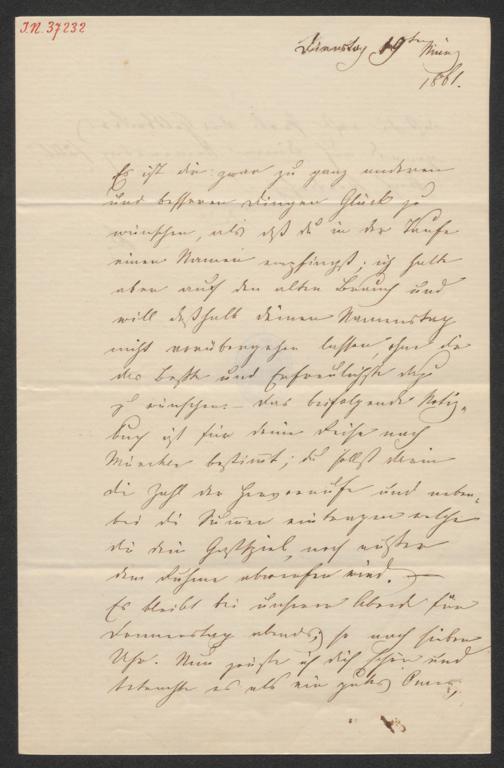 I.N. 37232
Dienstag 19ten März
1861.
Es ist dir zwar zu ganz anderen
und besseren Dingen Glück zu
wünschen, als daß du in der Taufe
einen Namen empfingst; ich halte
aber auf den alten Brauch und
will deßhalb deinen Namenstag
nicht vorübergehen lassen, ohne dir
das Beste und Erfreulichste dazu
zu wünschen. – Das beifolgende Notiz-
buch ist für deine Reise nach
München bestimmt; du sollst darin
die Zahl der Hervorrufe und neben-
bei die Summen eintragen welche
dir dein Gastspiel, noch außer
dem Ruhme abwerfen wird. –
Es bleibt bei unserer Abrede für
Donnerstag abends, so nach sieben
Uhr. Nun grüße ich dich schön und
betrachte es als ein gutes Omen,